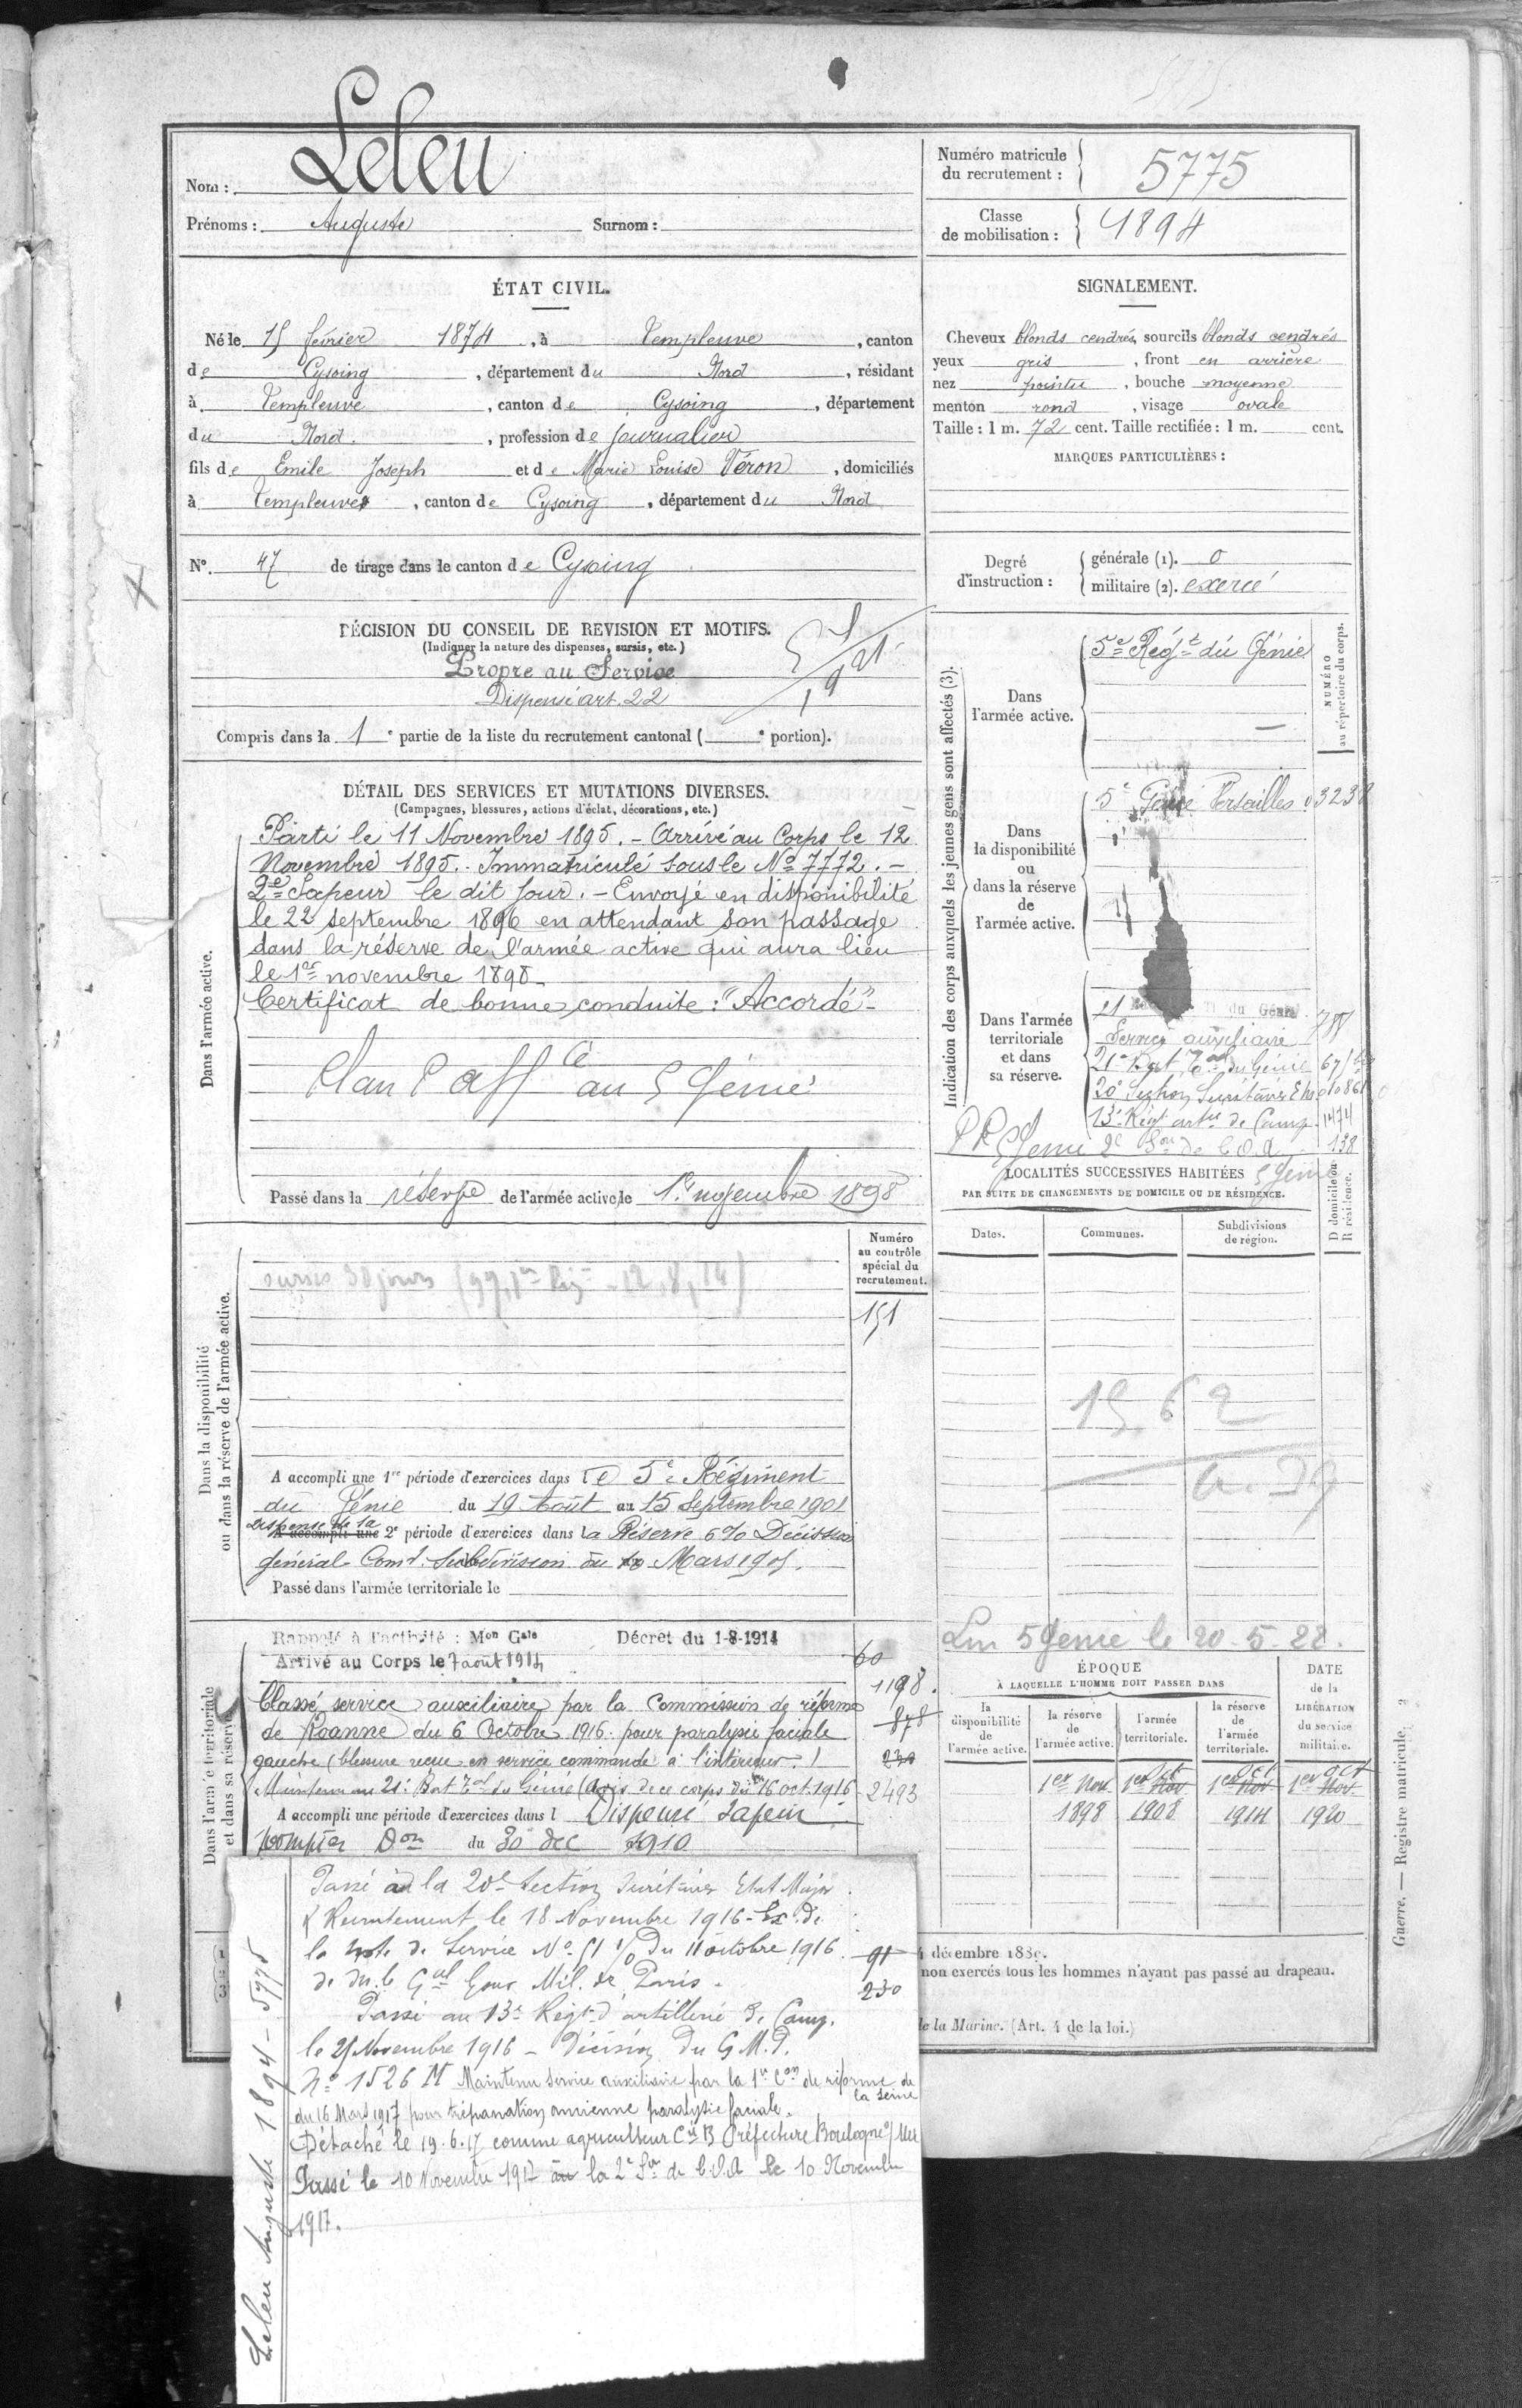 Nom : Leleu
Prénoms : Auguste Surnom :
Numéro matricule du recrutement : 5775
Classe de mobilisation : 1894
ÉTAT CIVIL.
Né le 15 février 1874, à Templeuve, canton
de Cysoing, département du Nord, résidant
à Templeuve, canton de Cysoing, département
du Nord, profession de journalier
fils de Emile Joseph et de Marie Louise Véron, domiciliés
à Templeuve, canton de Cysoing, département du Nord
SIGNALEMENT.
Cheveux blonds cendrés, sourcils blonds cendrés
yeux gris, front en arrière
nez pointu, bouche moyenne
menton rond, visage ovale
Taille : 1 m. 72 cent. Taille rectifiée : 1 m. cent.
MARQUES PARTICULIÈRES :
N° 47 de tirage dans le canton de Cysoing
Degré d'instruction :
générale (1). 0
militaire (2). exercé
DÉCISION DU CONSEIL DE REVISION ET MOTIFS.
(Indiquer la nature des dispenses, sursis, etc.)
Propre au Service
Dispensé art. 22
Compris dans la 1e partie de la liste du recrutement cantonal ( e portion).
DÉTAIL DES SERVICES ET MUTATIONS DIVERSES.
(Campagnes, blessures, actions d'éclat, décorations, etc.)
Dans l'armée active.
Parti le 11 Novembre 1895. - Arrivé au Corps le 12
Novembre 1895. Immatriculé sous le No 7772. -
2e Sapeur le dit jour. - Envoyé en disponibilité
le 22 septembre 1896 en attendant son passage
dans la réserve de l'armée active qui aura lieu
le 1er novembre 1898.
Certificat de bonne conduite : "Accordé" -
Plan P affcé au 5 Génie
Passé dans la réserve de l'armée active le 1er novembre 1898
Indication des corps auxquels les jeunes gens sont affectés (3).
NUMÉRO au répertoire du corps.
Dans l'armée active.
5e Régt du Génie
Dans la disponibilité ou dans la réserve de l'armée active.
5e Génie Versailles 03238
Dans l'armée territoriale et dans sa réserve.
21 du Génie
Service auxiliaire
21e Bat Tal du Génie
20e Section Secrétaires
13e Régt artie de Camp 1474
5 Génie 2e Son de C.O.A 138
5 Génie
LOCALITÉS SUCCESSIVES HABITÉES
PAR SUITE DE CHANGEMENTS DE DOMICILE OU DE RÉSIDENCE.
Dates. Communes. Subdivisions de région. D domicile ou R résidence.
Dans la disponibilité ou dans la réserve de l'armée active.
Numéro au contrôle spécial du recrutement.
151
sursis 30 jours
A accompli une 1re période d'exercices dans le 5e Régiment
du Génie du 19 Août au 15 Septembre 1901
Dispensé de la
A accompli une 2e période d'exercices dans la Réserve 6% Décision
Général Comt Subdivision du Mars 1905.
Passé dans l'armée territoriale le
Dans l'armée territoriale et dans sa réserve
Rappelé à l'activité : Mon Gale Décret du 1-8-1914
Arrivé au Corps le 7 août 1914
Classé service auxiliaire par la Commission de réforme
de Roanne du 6 Octobre 1916 pour paralysie faciale
gauche (blessure reçue en service commandé à l'intérieur.)
Maintenu au 21e Bat Tal du Génie (Avis de ce corps du 16 oct. 1916
A accompli une période d'exercices dans l Dispensé Sapeur
pompier Don du 30 dec 1910
60
1198.
878
230
2493
Lm 5 Genie le 20-5-22.
ÉPOQUE À LAQUELLE L'HOMME DOIT PASSER DANS
DATE de la LIBÉRATION du service militaire.
la disponibilité de l'armée active. la réserve de l'armée active. l'armée territoriale. la réserve de l'armée territoriale.
1er Nov. 1898
1er Nov Oct 1908
1er Nov Oct 1914
1er Nov. Oct 1920
Passé à la 20e Section Secrétaires Etat Major
& Recrutement le 18 Novembre 1916 - Ex. de
la Note de Service No du 11 octobre 1916.
de Mr le Gal Gouv. Mil. de Paris.
Passé au 13e Régt d'artillerie de Camp.
le 25 Novembre 1916 - Décision du G.M.P.
No 1526 M Maintenu service auxiliaire par la 1re Con de réforme de la Seine
du 16 Mars 1917 pour trépanation ancienne paralysie faciale.
Détaché le 19.6.17 comme agriculteur Cie B Préfecture Boulogne s/Mer
Passé le 10 Novembre 1917 au la 2e Son de C.O.A le 10 Novembre
1917.
91
230
Leleu Auguste 1894 - 5775
décembre 188
non exercés tous les hommes n'ayant pas passé au drapeau.
de la Marine. (Art. 4 de la loi.)
Guerre. — Registre matricule. 2